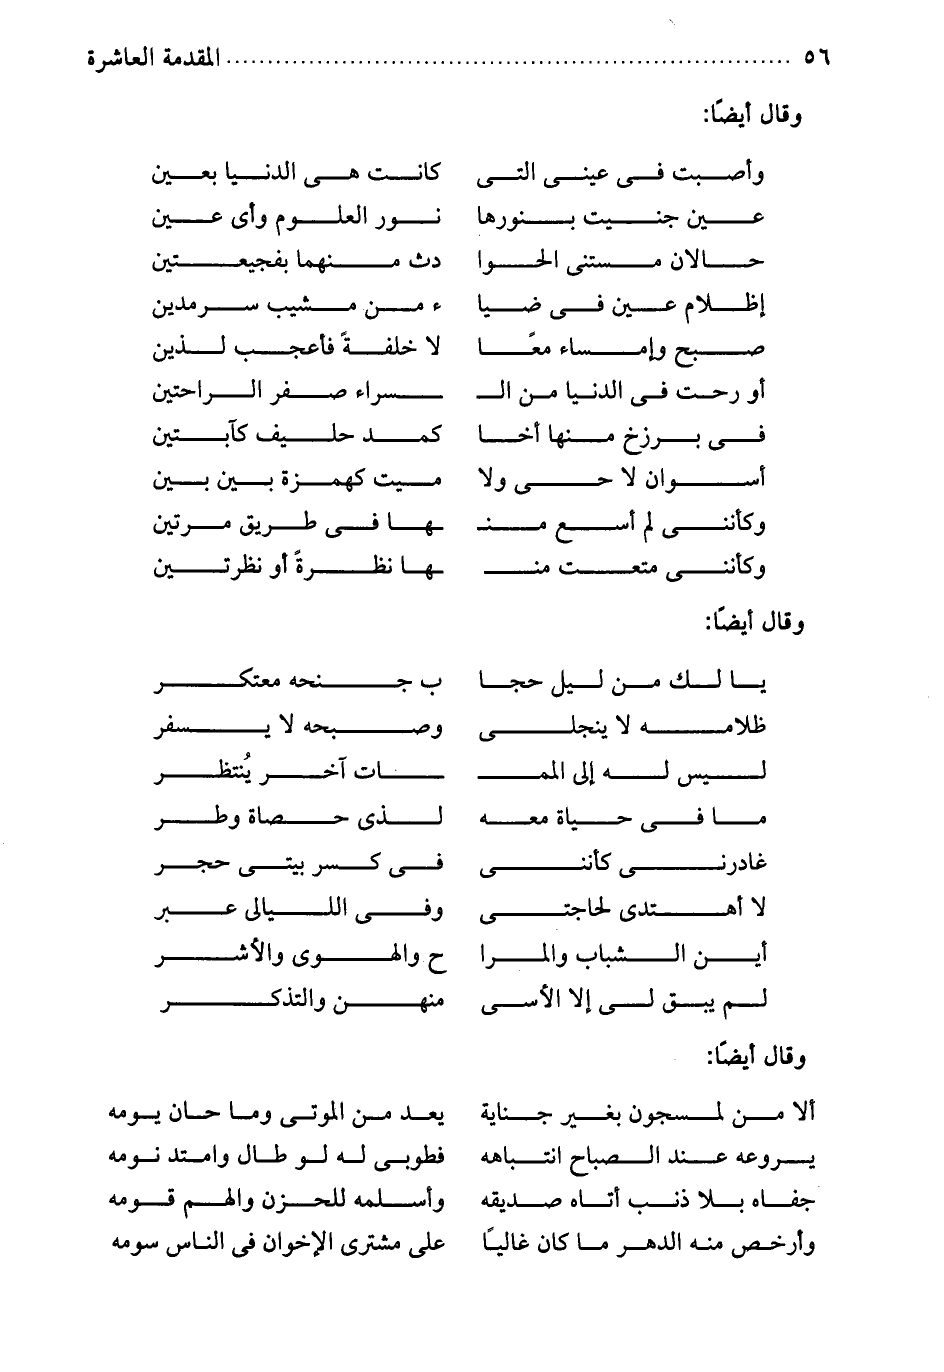 ٥٦ ........ المقدمة العاشرة
وقال أيضًا:
وأصبت فى عينى التى كانت هى الدنيا بعين
عين جنيت بنورها نور العلوم وأى عين
حالان مستنى الحوا دث منهما بفجيعتين
إظلام عين فى ضيا ء من مشيب سرمدين
صبح وإمساء معًا لا خلفةً فأعجب لذين
أو رحت فى الدنيا من الـ ـسراء صفر الراحتين
فى برزخ منها أخا كمد حليف كآبتين
أسوان لا حى ولا ميت كهمزة بين بين
وكأننى لم أسع منـ ـها فى طريق مرتين
وكأننى متعت منـ ـها نظرةً أو نظرتين
وقال أيضًا:
يا لك من ليل حجا ب جنحه معتكر
ظلامه لا ينجلى وصبحه لا يسفر
ليس له إلى الممـ ـات آخر يُنتظر
ما فى حياة معه لذى حصاة وطر
غادرنى كأننى فى كسر بيتى حجر
لا أهتدى لحاجتى وفى الليالى عبر
أين الشباب والمرا ح والهوى والأشر
لم يبق لى إلا الأسى منهن والتذكر
وقال أيضًا:
ألا من لمسجون بغير جناية يعد من الموتى وما حان يومه
يروعه عند الصباح انتباهه فطوبى له لو طال وامتد نومه
جفاه بلا ذنب أتاه صديقه وأسلمه للحزن والهم قومه
وأرخص منه الدهر ما كان غاليًا على مشترى الإخوان فى الناس سومه